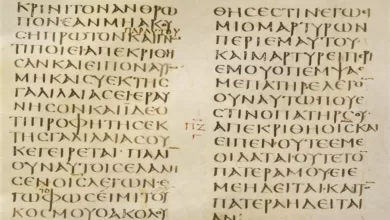 ΚΡΙΝΙΤΟΝΑΝΘΡΩ
ΠΟΝΕΑΝΜΗΑΚΟΥ
ΠΑΡΑΥΤΟΥ
ϹΗΠΡΩΤΟΝΚΑΙΓΝΩ
ΤΙΠΟΙΕΙΑΠΕΚΡΙΘΗ
ϹΑΝΚΑΙΕΙΠΟΝΑΥΤΩ
ΜΗΚΑΙϹΥΕΚΤΗϹ
ΓΑΛΙΛΑΙΑϹΕΙΕΡΑΥ
ΝΗϹΟΝΚΑΙΪΔΕΟ
ΤΙΠΡΟΦΗΤΗϹΕΚ
ΤΗϹΓΑΛΙΛΑΙΑϹΟΥ
ΚΕΓΕΙΡΕΤΑΙ ΠΑΛΙ
ΟΥΝΑΥΤΟΙϹΕΛΑΛΗ
ϹΕΝΟΙϹΛΕΓΩΝΕ
ΤΟ
ΓΩΦΩϹΕΙΜΙΤΟΥ
ΚΟϹΜΟΥΟΑΚΟΛΟΥ
ΘΗϹΕϹΤΙΝΕΓΩΕΙ
ΜΙΟΜΑΡΤΥΡΩΝ
ΠΕΡΙΕΜΑΥΤΟΥ
ΚΑΙΜΑΡΤΥΡΕΙΠΕΡΙ
ΕΜΟΥΟΠΕΜΨΑϹ
ΜΕΠΑΤΗΡΕΛΕΓΟ
ΟΥΝΑΥΤΩΠΟΥΕ
ϹΤΙΝΟΠΑΤΗΡϹΟΥ
ΠΖ
Γ
ΑΠΕΚΡΙΘΗΟΙϹΚΑΙ
ΕΙΠΕΝΟΥΤΕΕΜΕ
ΟΙΔΑΤΑΙΟΥΤΕΤΟ
ΠΑΤΕΡΑΜΟΥΕΙΕ
ΜΕΗΔΕΙΤΑΙΚΑΙΤΟ
ΠΑΤΕΡΑΗΔΕΙΤΑΙ
ΑΝ